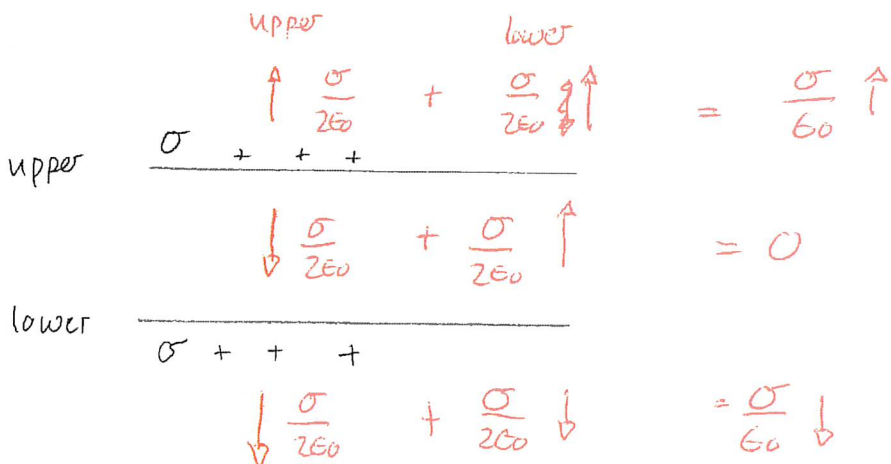 upper lower
↑ σ/2ϵ0 + σ/2ϵ0 ↑ = σ/ϵ0 ↑
upper σ + + +
↓ σ/2ϵ0 + σ/2ϵ0 ↑ = 0
lower
σ + + +
↓ σ/2ϵ0 + σ/2ϵ0 ↓ = σ/ϵ0 ↓